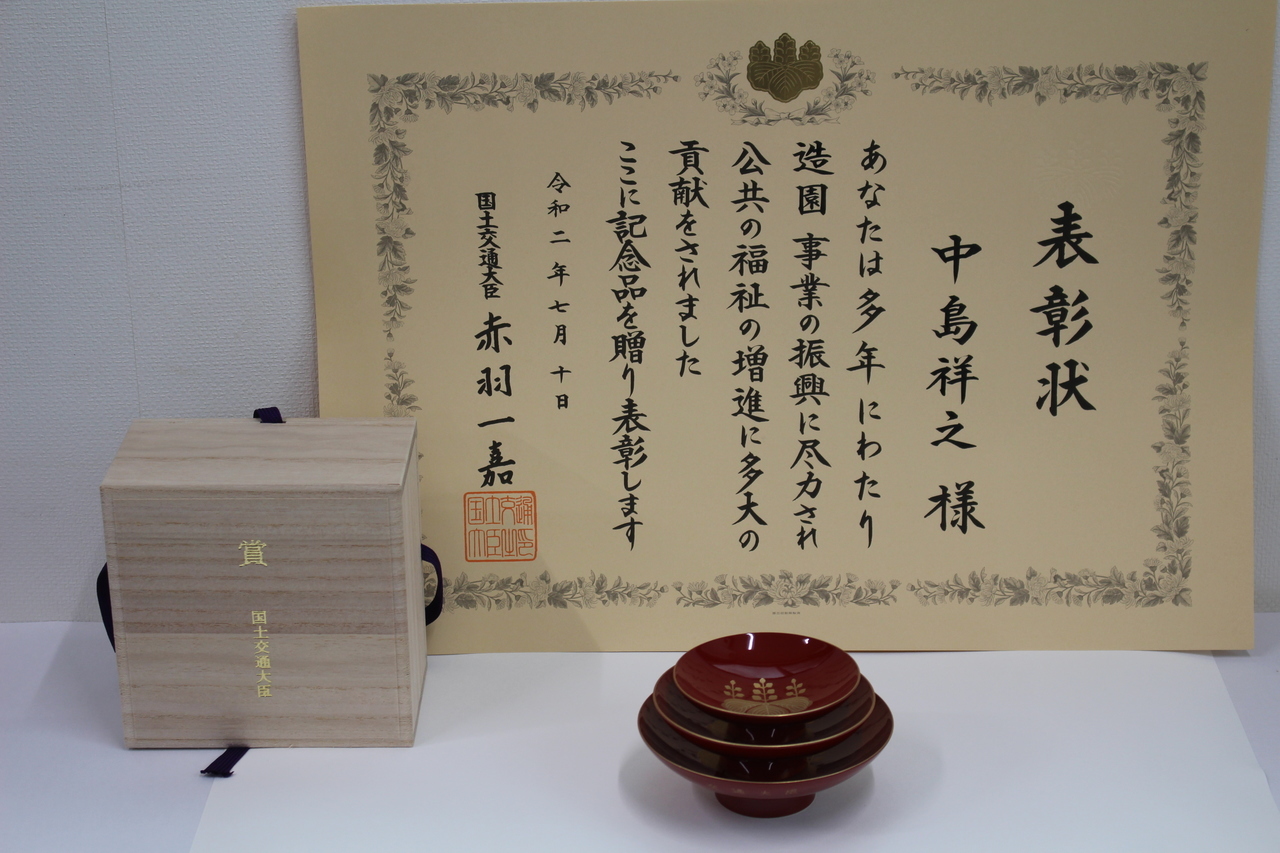 表彰状
中島祥之 様
あなたは多年にわたり
造園 事業の振興に尽力され
公共の福祉の増進に多大の
貢献をされました
ここに記念品を贈り表彰します
令和二年七月十日
国土交通大臣 赤羽一嘉
国土交通
大臣之印
賞
国土交通大臣